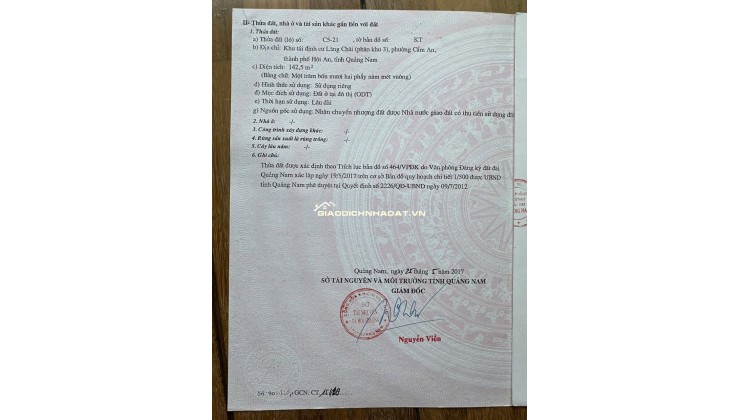 II- Thửa đất, nhà ở và tài sản khác gắn liền với đất
1. Thửa đất:
a) Thửa đất (lô) số: C5-21 , tờ bản đồ số: KT
b) Địa chỉ: Khu tái định cư Làng Chài (phân khu 3), phường Cẩm An,
thành phố Hội An, tỉnh Quảng Nam
c) Diện tích: 142,5 m²
(Bằng chữ: Một trăm bốn mươi hai phẩy năm mét vuông)
d) Hình thức sử dụng: Sử dụng riêng
đ) Mục đích sử dụng: Đất ở tại đô thị (ODT)
e) Thời hạn sử dụng: Lâu dài
g) Nguồn gốc sử dụng: Nhận chuyển nhượng đất được Nhà nước giao đất có thu tiền sử dụng đất
2. Nhà ở: -/-
3. Công trình xây dựng khác: -/-
4. Rừng sản xuất là rừng trồng: -/-
5. Cây lâu năm: -/-
6. Ghi chú:
Thửa đất được xác định theo Trích lục bản đồ số 464/VPĐK do Văn phòng Đăng ký đất đai
Quảng Nam xác lập ngày 19/5/2017 trên cơ sở Bản đồ quy hoạch chi tiết 1/500 được UBND
tỉnh Quảng Nam phê duyệt tại Quyết định số 2226/QĐ-UBND ngày 09/7/2012.
GIAODICHNHADAT.VN
Quảng Nam, ngày 25 tháng 5 năm 2017
SỞ TÀI NGUYÊN VÀ MÔI TRƯỜNG TỈNH QUẢNG NAM
GIÁM ĐỐC
SỞ
TÀI NGUYÊN
Nguyễn Viễn
GCN: CT